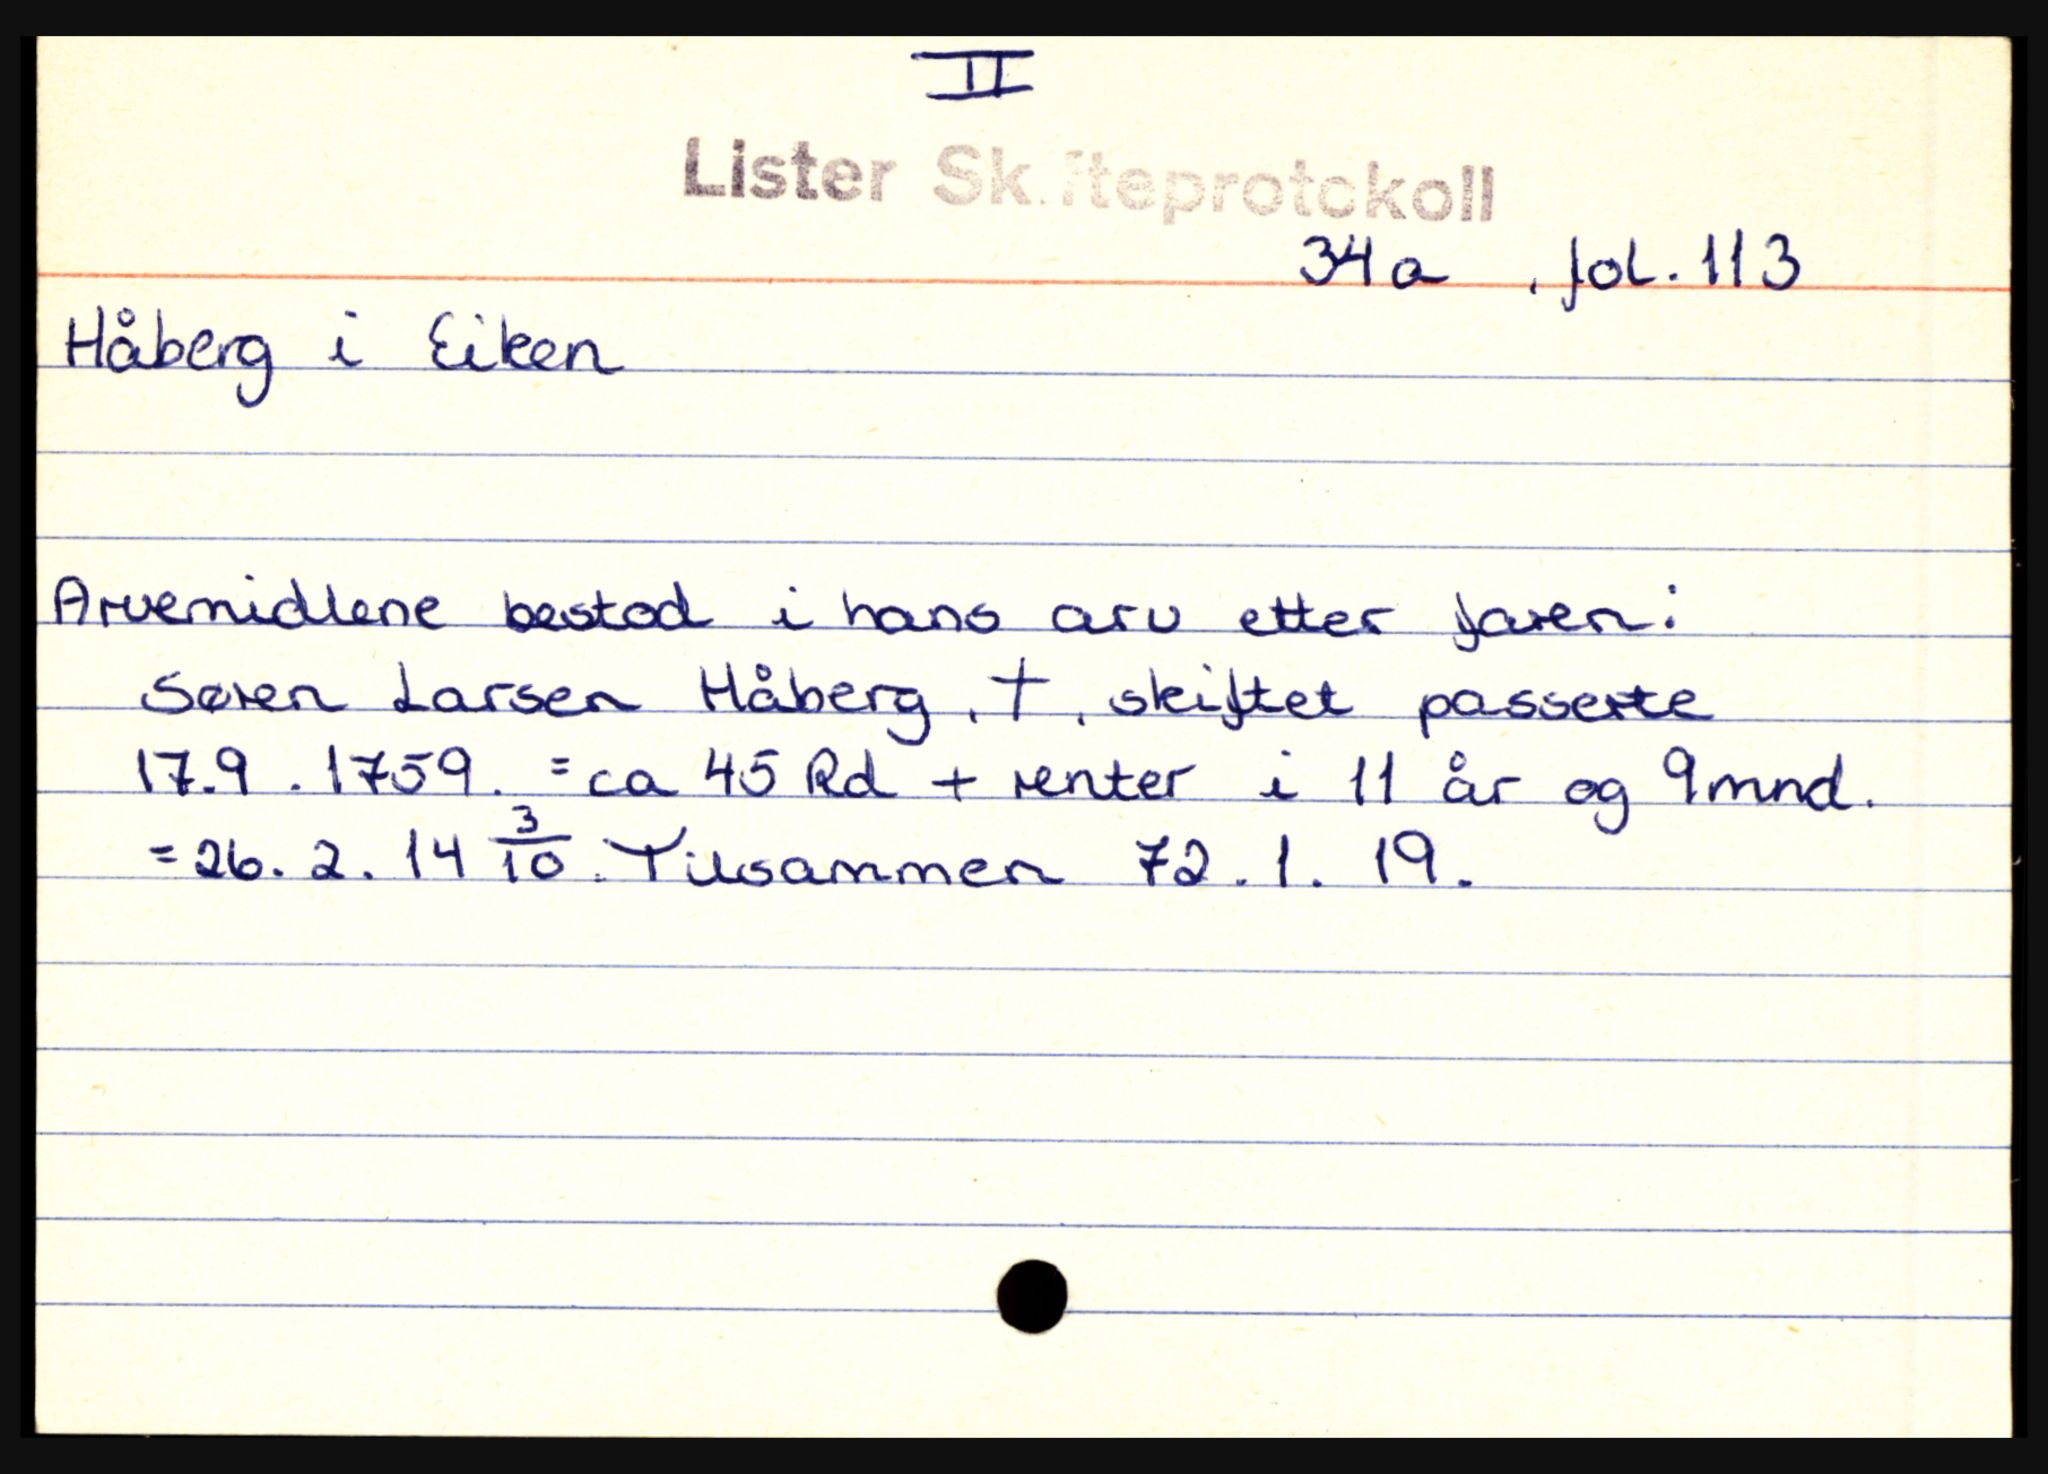 II
Lister Skifteprotokoll
34a , fol. 113
Håberg i Eiken
Arvemidlene bestod i hans arv etter faren:
Søren Larsen Håberg, †, skiftet passerte
17.9.1759. = ca 45 Rd + renter i 11 år og 9 mnd.
= 26. 2. 14 3/10. Tilsammen 72. 1. 19.